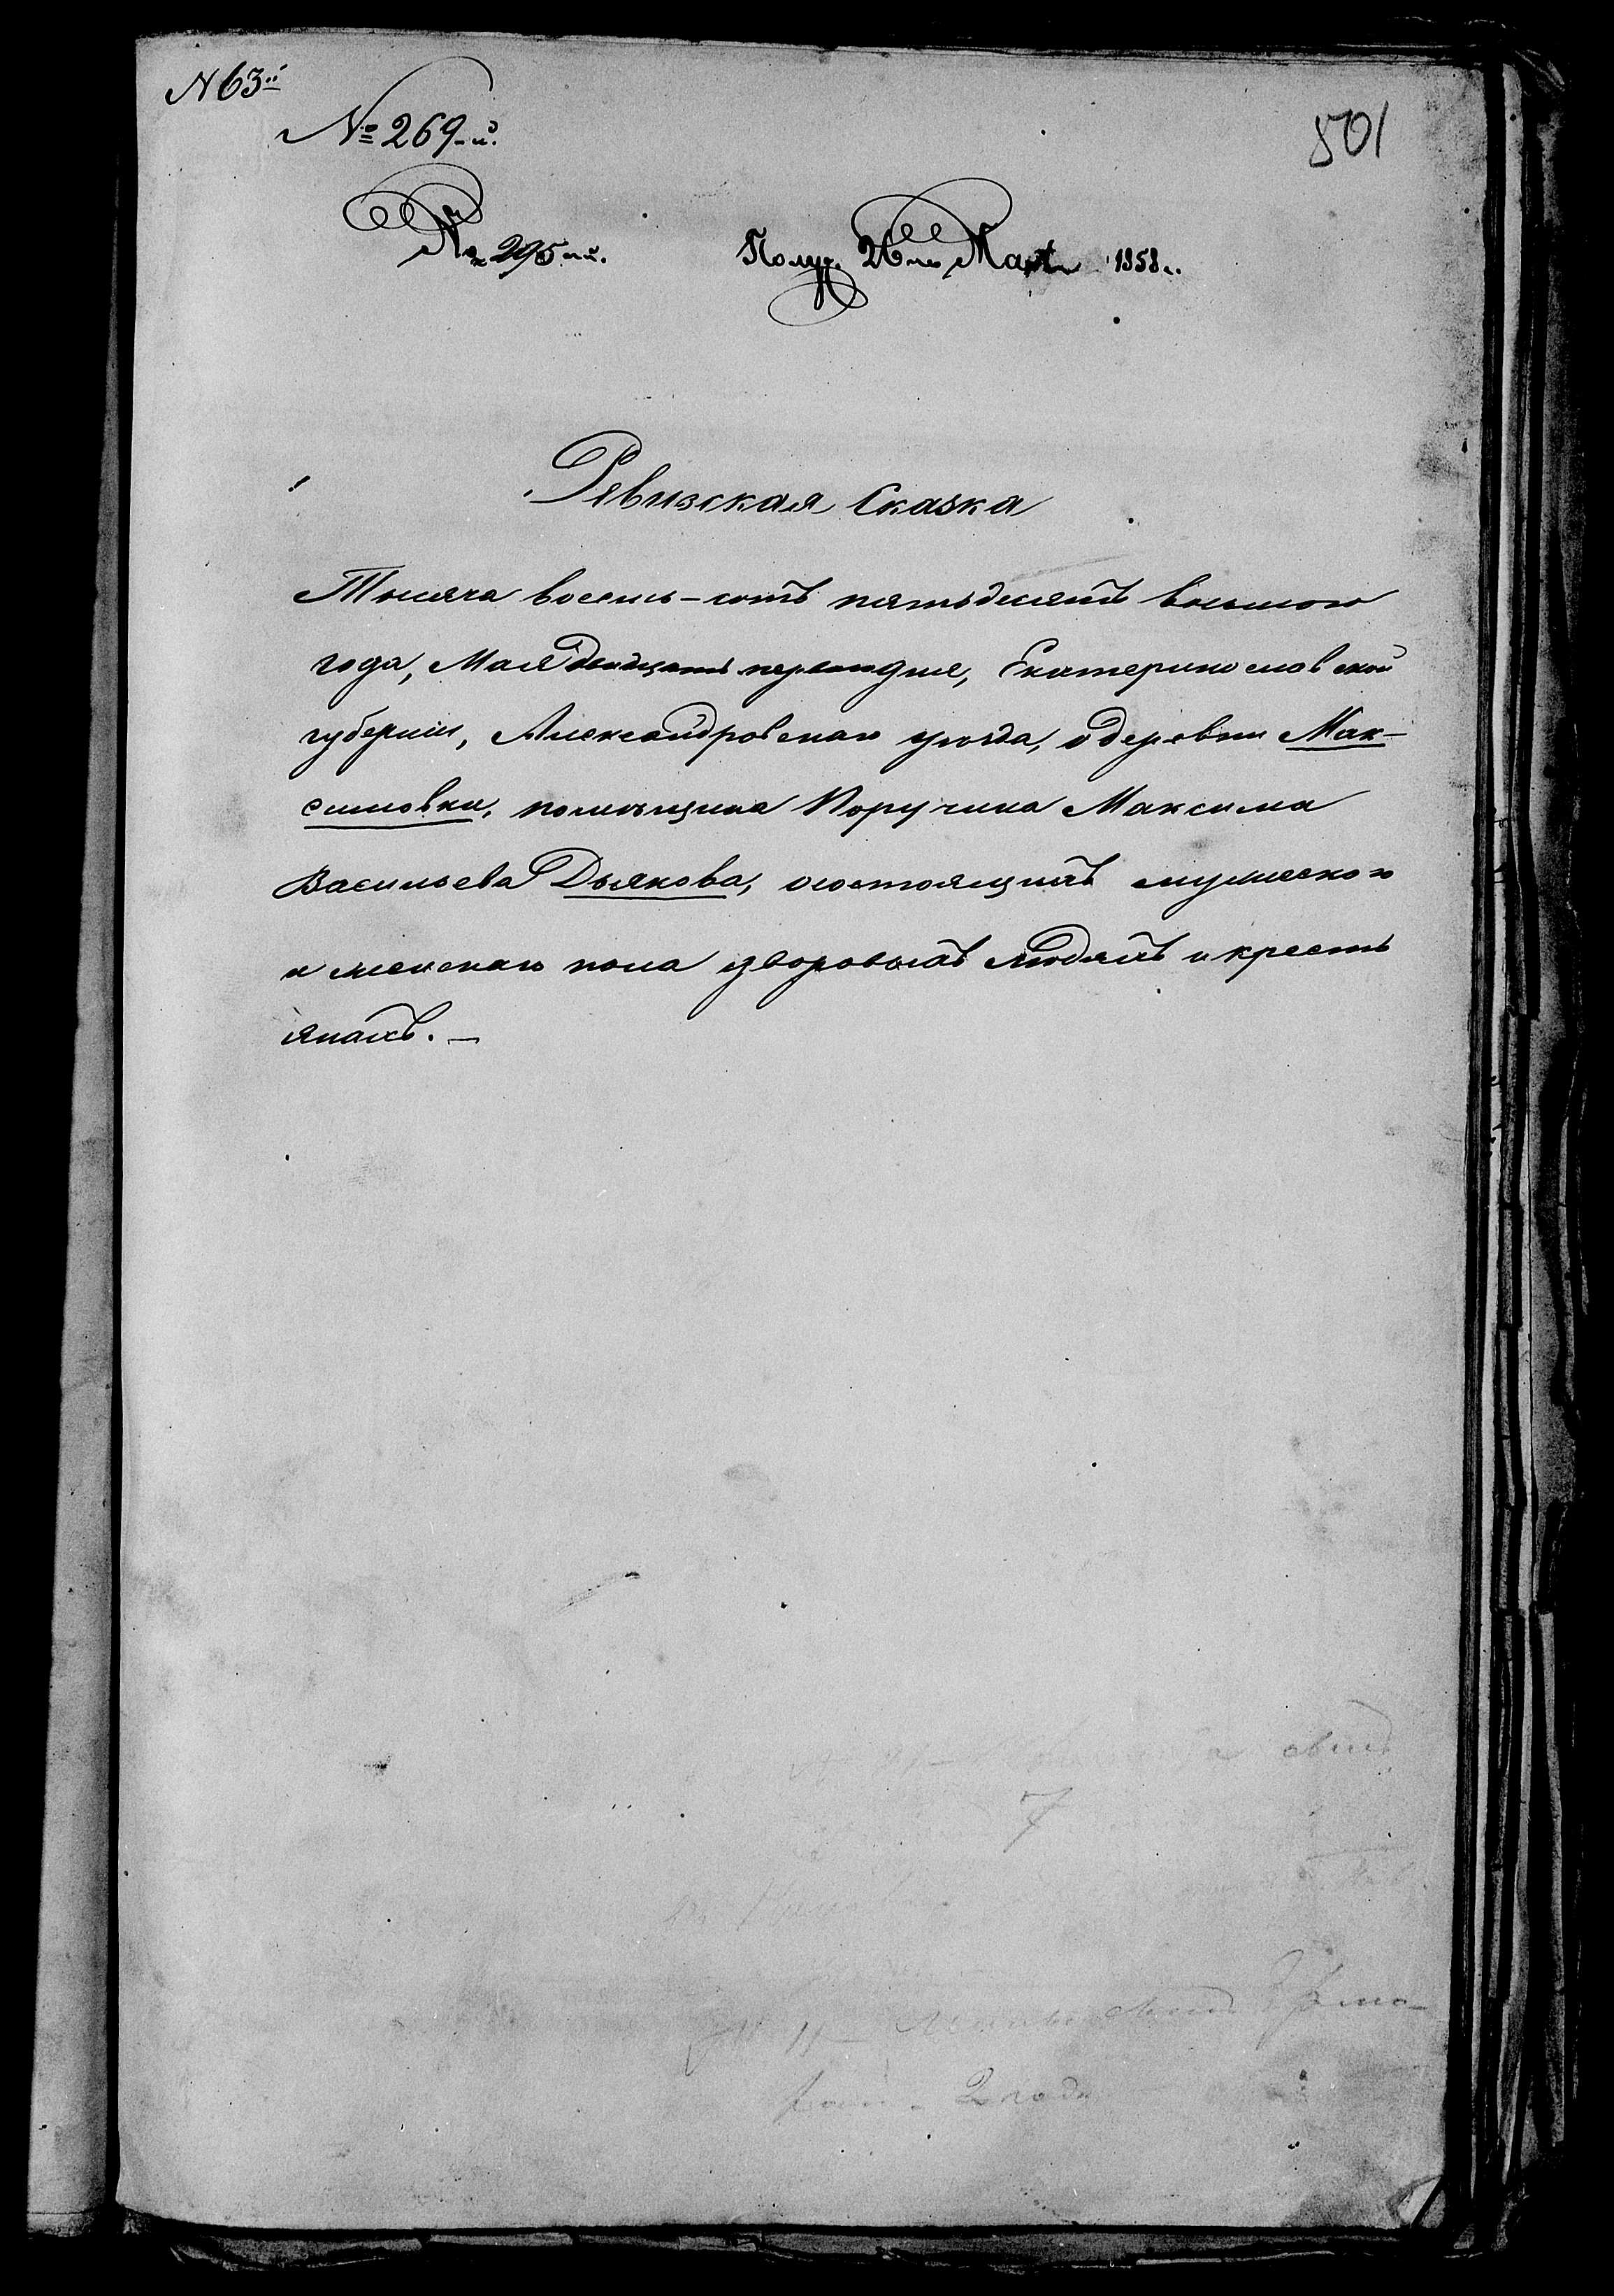 N 63й
№ 269-й.
501
№ 295-й.
Получ. 26го Марта 1858 г.
Ревизская Сказка
Тысяча восемь-сотъ пятьдесятъ восьмого
года, Мая двадцать перваго дня, Екатеринославской
губерніи, Александровскаго уѣзда, о деревни Мак-
симовки, помѣщика Поручика Максима
Васильева Дьякова, о состоящихъ мужескаго
и женскаго пола дворовыхъ людяхъ и кресть
янахъ. —
7
2 года